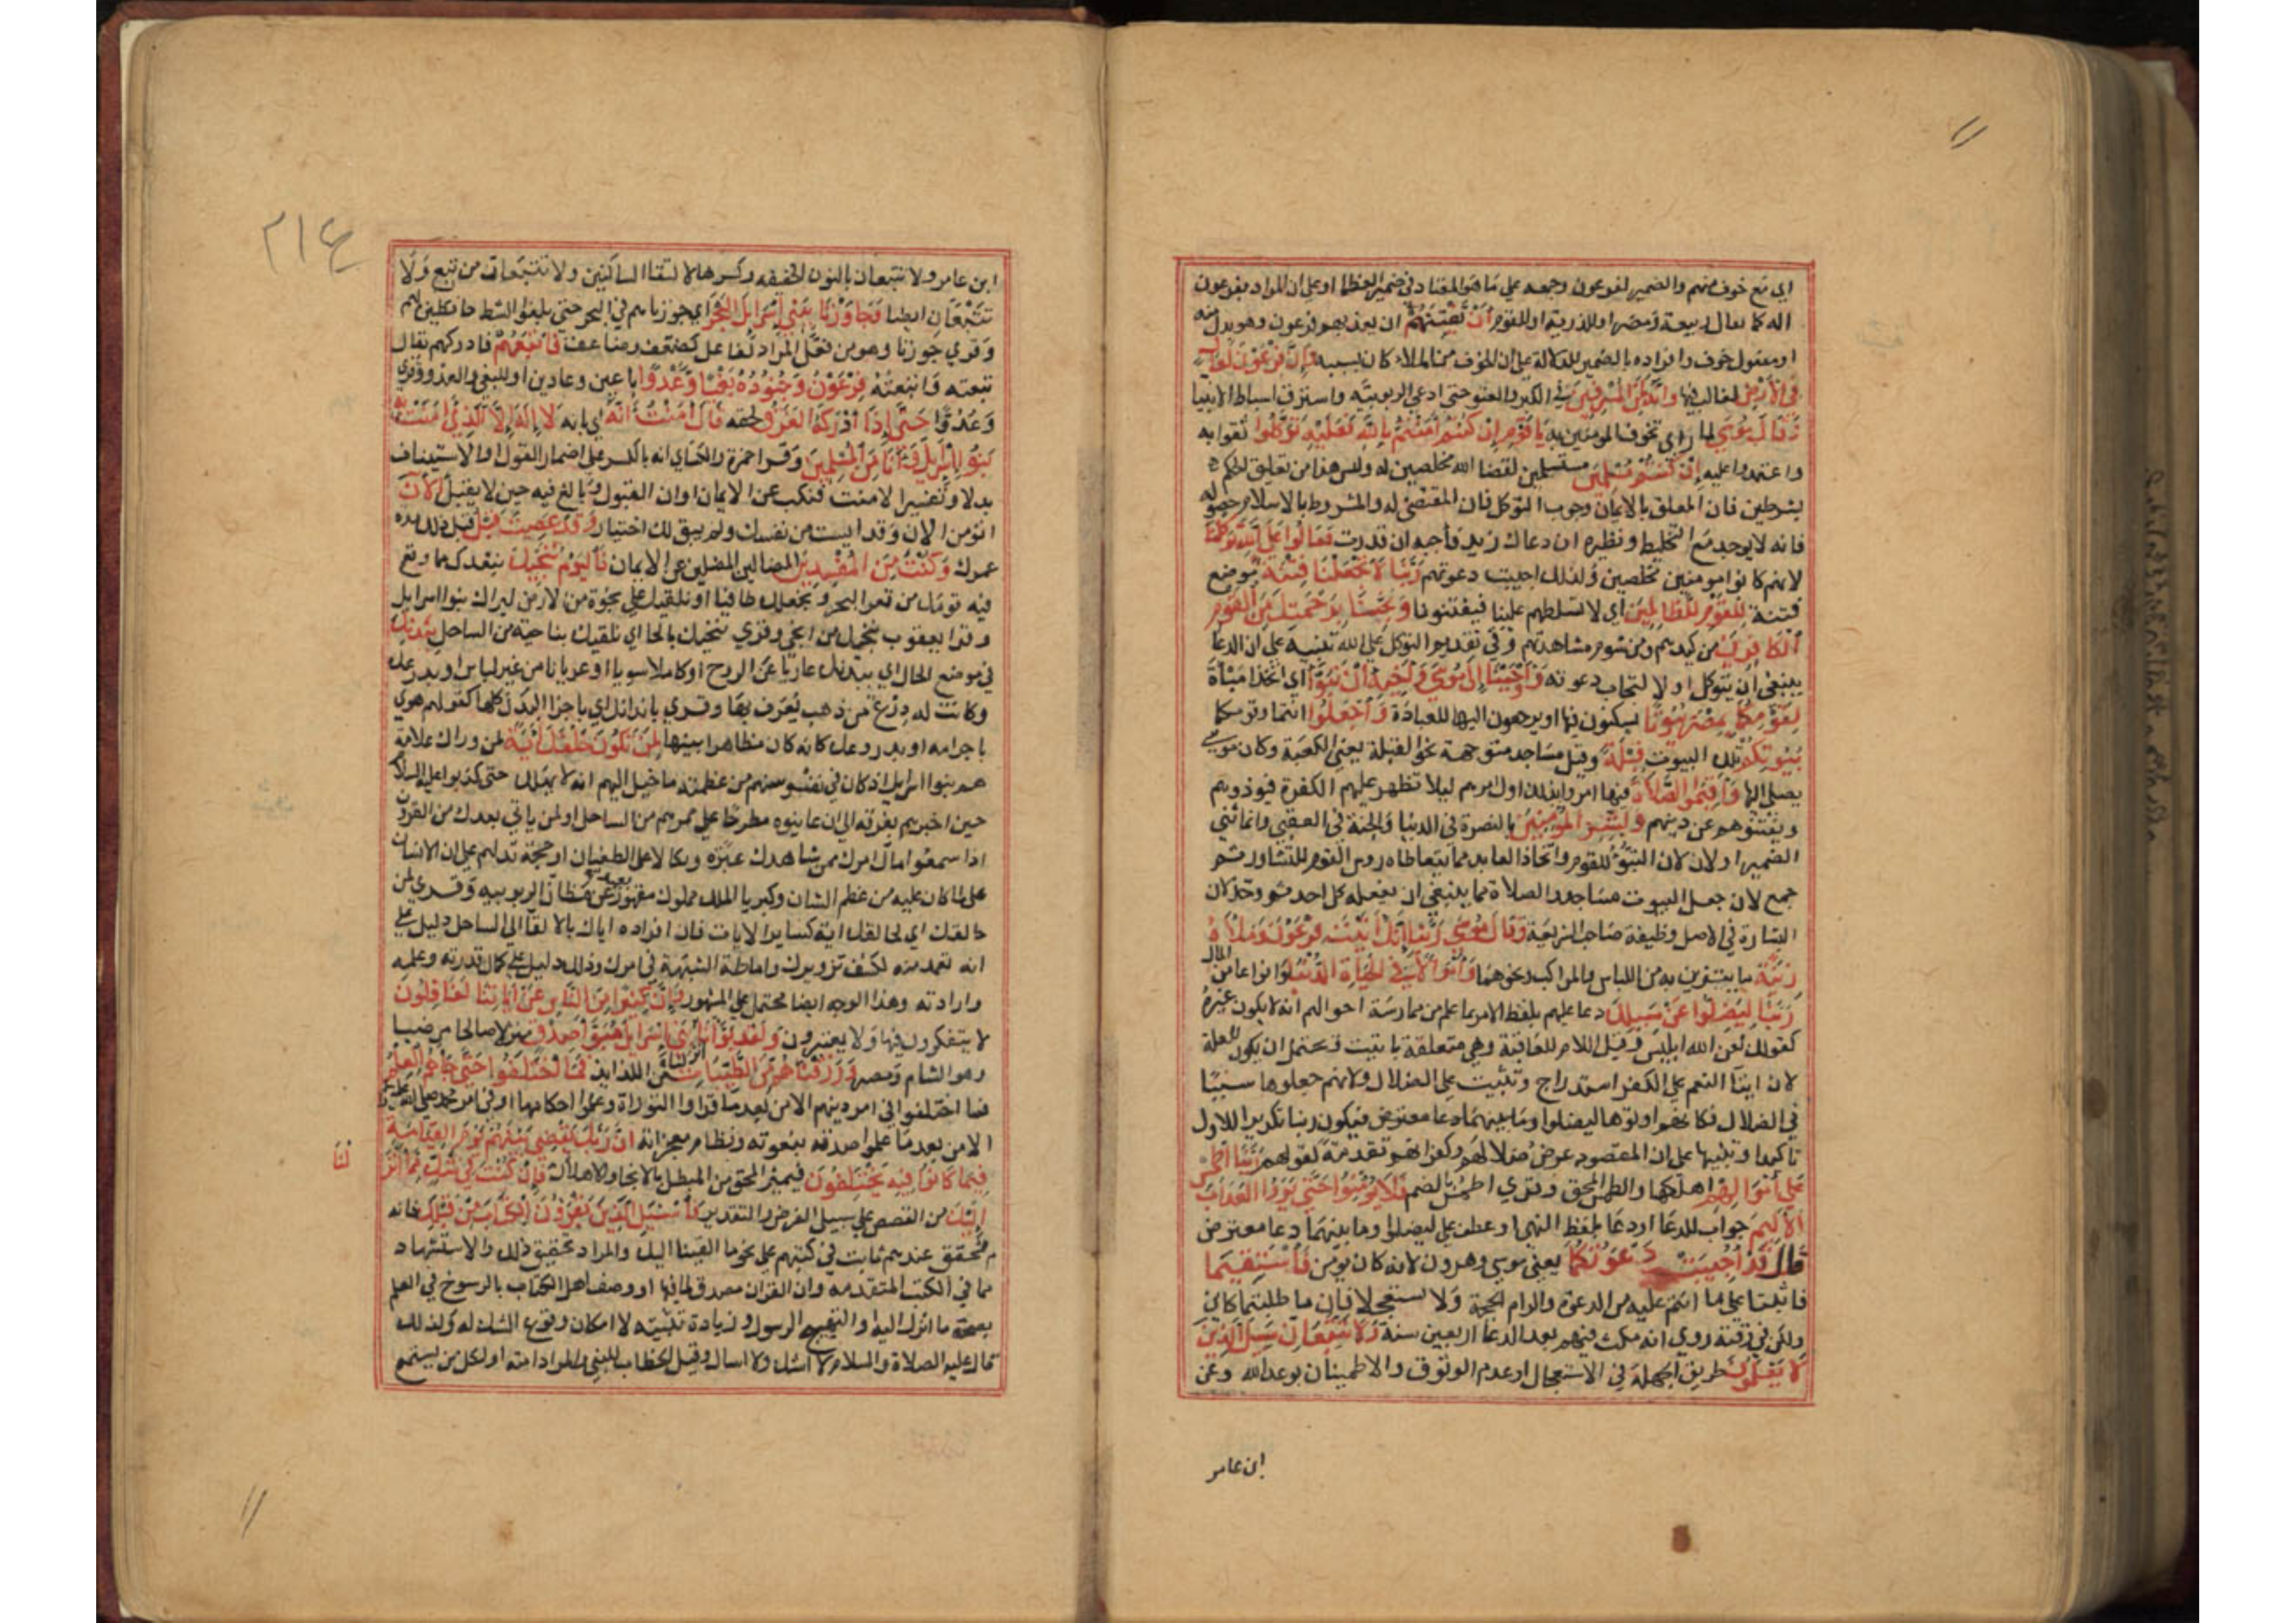 اي مع خوف منهم والضمير لفرعون وجمعه علي ما هو المعتاد في ضمير العظما او علي ان المراد بفرعون
اله كما يقال ربيعة ومضر او للذرية او للقوم أَنْ يَفْتِنَهُمْ ان يعذبهم فرعون وهو بدل منه
او مفعول خوف وافراده بالضمير للدلالة علي ان الخوف من الملاء كان بسببه وَإِنَّ فِرْعَوْنَ لَعَالٍ
فِي الأَرْضِ لغالب فيها وَإِنَّهُ لَمِنَ الْمُسْرِفِينَ في الكبر والعتو حتى ادعي الربوبية واسترق اسباط الانبيا
وَقَالَ مُوسَي لما راي تخوف المومنين به يَا قَوْمِ إِنْ كُنْتُمْ آمَنْتُمْ بِاللَّهِ فَعَلَيْهِ تَوَكَّلُوا ثقوا به
واعتمدوا عليه إِنْ كُنْتُمْ مُسْلِمِينَ مستسلمين لقضا الله مخلصين له وليس هذا من تعليق الحكم
بشرطين فان المعلق بالايمان وجوب التوكل فان المقتضي له والمشروط بالاسلام حصوله
فانه لا يوجد مع التخليط ونظيره ان دعاك زيد فأجبه ان قدرت فَقَالُوا عَلَي اللَّهِ تَوَكَّلْنَا
لانهم كانوا مومنين مخلصين ولذلك اجيبت دعوتهم رَبَّنَا لَا تَجْعَلْنَا فِتْنَةً موضع
فتنة لِلْقَوْمِ الظَّالِمِينَ اي لا تسلطهم علينا فيفتنونا وَنَجِّنَا بِرَحْمَتِكَ مِنَ الْقَوْمِ
الْكَافِرِينَ من كيدهم ومن شوم مشاهدتهم وفي تقديم التوكل علي الله تنبيه علي ان الدعا
ينبغي أن يتوكل اولا لتجاب دعوته وَأَوْحَيْنَا إِلَى مُوسَى وَأَخِيهِ أَنْ تَبَوَّآ اي اتخذا مباة
لِقَوْمِكُمَا بِمِصْرَ بُيُوتًا يسكنون فيها او يرجعون اليها للعبادة وَاجْعَلُوا انتما وقومكما
بُيُوتَكُمْ تلك البيوت قِبْلَةً وقيل مساجد متوجهة نحو القبلة يعني الكعبة وكان موسي
يصلي اليها وَأَقِيمُوا الصَّلَاةَ فيها امروا بذلك اول امرهم ليلا تظهر عليهم الكفرة فيوذوهم
ويفتنوهم عن دينهم وَبَشِّرِ الْمُؤْمِنِينَ بالنصرة في الدنيا والجنة في العقبي وانما ثني
الضمير اولا لان التبوّ للقوم واتخاذ المعابد مما يتعاطاه روس القوم للتشاور ثم
جمع لان جعل البيوت مساجد والصلاة مما ينبغي ان يفعله كل احد ثم وحد لان
البشارة في الاصل وظيفة صاحب الشريعة وَقَالَ مُوسَى رَبَّنَا إِنَّكَ آتَيْتَ فِرْعَوْنَ وَمَلَأَهُ
زِينَةً ما يتزين به من اللباس والمراكب ونحوهما وَأَمْوَالًا فِي الْحَيَاةِ الدُّنْيَا وانواعا من المال
رَبَّنَا لِيُضِلُّوا عَنْ سَبِيلِكَ دعا عليهم بلفظ الامر بما علم من ممارسة احوالهم انه لا يكون غيره
كقولك لعن الله ابليس وقيل اللام للعاقبة وهي متعلقة باتيت ويحتمل ان يكون للعلة
لان ايتا النعم علي الكفر استدراج وتثبيت علي الضلال ولانهم جعلوها سببًا
في الضلال فكانهم اوتوها ليضلوا وما بينهما دعا معترض فيكون ربنا تكريرا للاول
تاكيدا وتنبيها علي ان المقصود عرض ضلالهم وكفرانهم تقدمة لقولهم رَبَّنَا اطْمِسْ
عَلَى أَمْوَالِهِمْ اهلكها والطمس المحق وقري اطمس بالضم فَلَا يُؤْمِنُوا حَتَّى يَرَوُا الْعَذَابَ
الْأَلِيمَ جواب للدعا او دعا بلفظ النهي او عطف علي ليضلوا وما بينهما دعا معترض
قَالَ قَدْ أُجِيبَتْ دَعْوَتُكُمَا يعني موسي وهرون لانه كان يومن فَاسْتَقِيمَا
فاثبتا علي ما انتم عليه من الدعوة والزام الحجة ولا تستعجلا فان ما طلبتما كاين
ولكن في وقته روي انه مكث فيهم بعد الدعا اربعين سنة وَلَا تَتَّبِعَانِ سَبِيلَ الَّذِينَ
لَا يَعْلَمُونَ طريق الجهلة في الاستعجال او عدم الوثوق والاطمينان بوعد الله وعن
ابن عامر
٢١٤
ابن عامر ولا تتبعان بالنون الخفيفه وكسرها لالتقا الساكنين ولا تتبعان من تبع ولا
تتبعان ايضا فَجَاوَزْنَا بِبَنِي إِسْرَايِلَ الْبَحْرَ اي جوزناهم في البحر حتى بلغوا الشط حافظين لهم
وقري جوزنا وهو من فعّل المرادف لفاعل كضعف وضاعف فَأَتْبَعَهُمْ فادركهم يقال
تبعته واتبعته فِرْعَوْنُ وَجُنُودُهُ بَغْيًا وَعَدْوًا باغين وعادين او للبغي والعدو وقري
وعدوّا حَتَّى إِذَا أَدْرَكَهُ الْغَرَقُ لحقه قَالَ آمَنْتُ أَنَّهُ اي بانه لَا إِلَهَ إِلَّا الَّذِي آمَنَتْ بِهِ
بَنُو إِسْرَايِلَ وَأَنَا مِنَ الْمُسْلِمِينَ وقرا حمزة والكساي انه بالكسر علي اضمار القول او الاستيناف
بدلا وتفسيرا لامنت فنكب عن الايمان اوان القبول وبالغ فيه حين لا يقبل آلْآنَ
اتومن الان وقد ايست من نفسك ولم يبق لك اختيار وَقَدْ عَصَيْتَ قَبْلُ قبل ذلك مدة
عمرك وَكُنْتَ مِنَ الْمُفْسِدِينَ الضالين المضلين عن الايمان فَالْيَوْمَ نُنَجِّيكَ نبعدك مما وقع
فيه قومك من قعر البحر ونجعلك طافيا او نلقيك علي نجوة من الارض ليراك بنوا اسرايل
وقرا يعقوب ننجيك من انجي وقري ننحيك بالحا اي نلقيك بناحية من الساحل بِبَدَنِكَ
في موضع الحال اي ببدنك عاريا عن الروح او كاملا سويا او عريانا من غير لباس او بدرعك
وكانت له درع من ذهب يعرف بها وقري بابدانك اي باجزا البدن كلها كقولهم هوي
باجرامه او بدروعك كانه كان مظاهرا بينها لِمَنْ خَلْفَكَ آيَةً لمن وراك علامة
هم بنوا اسرايل اذ كان في نفوسهم من عظمته ما خيل اليهم انه لا يهلك حتى كذبوا عليه السلام
حين اخبرهم بغرقه الي ان عاينوه مطرحا علي ممرهم من الساحل او لمن ياتي بعدك من القرون
اذا سمعوا مآل امرك ممن شاهدك عبرة ونكالا علي الطغيان او حجة تدلهم علي ان الانسان
علي ما كان عليه من عظم الشان وكبريا الملك مملوك مقهور بعيد عن مظان الربوبيه وقري لمن
خالقك اي لخالقك اية كساير الايات فان افراده اياك بالالقا الي الساحل دليل علي
انه تعمد منه لكشف تزويرك واماطة الشبهة في امرك وذلك دليل علي كمال قدرته وعلمه
وارادته وهذا الوجه ايضا محتمل علي المشهور وَإِنَّ كَثِيرًا مِنَ النَّاسِ عَنْ آيَاتِنَا لَغَافِلُونَ
لا يتفكرون فيها ولا يعتبرون وَلَقَدْ بَوَّأْنَا بَنِي إِسْرَايِلَ مُبَوَّأَ صِدْقٍ منزلا صالحا مرضيا
وهو الشام ومصر وَرَزَقْنَاهُمْ مِنَ الطَّيِّبَاتِ من اللذايذ فَمَا اخْتَلَفُوا حَتَّى جَاءَهُمُ الْعِلْمُ
فما اختلفوا في امر دينهم الا من بعد ما قراوا التوراة وعلموا احكامها او في امر محمد صلي الله عليه
الا من بعد ما علموا صدقه بنعوته وتظاهر معجزاته إِنَّ رَبَّكَ يَقْضِي بَيْنَهُمْ يَوْمَ الْقِيَامَةِ
فِيمَا كَانُوا فِيهِ يَخْتَلِفُونَ فيميز المحق من المبطل بالانجا والاهلاك فَإِنْ كُنْتَ فِي شَكٍّ مِمَّا أَنْزَ
لنا
إِلَيْكَ من القصص علي سبيل الفرض والتقدير فَاسْأَلِ الَّذِينَ يَقْرَءُونَ الْكِتَابَ مِنْ قَبْلِكَ فانه
محقق عندهم ثابت في كتبهم علي نحو ما القينا اليك والمراد تحقيق ذلك والاستشهاد
بما في الكتب المتقدمه وان القران مصدق لما فيها او وصف اهل الكتاب بالرسوخ في العلم
بصحة ما انزل اليه او تهييج الرسول وزيادة تثبيته لا امكان وقوع الشك له ولذلك
قال عليه الصلاة والسلام لا اشك ولا اسال وقيل الخطاب للنبي والمراد امته او لكل من يسمع